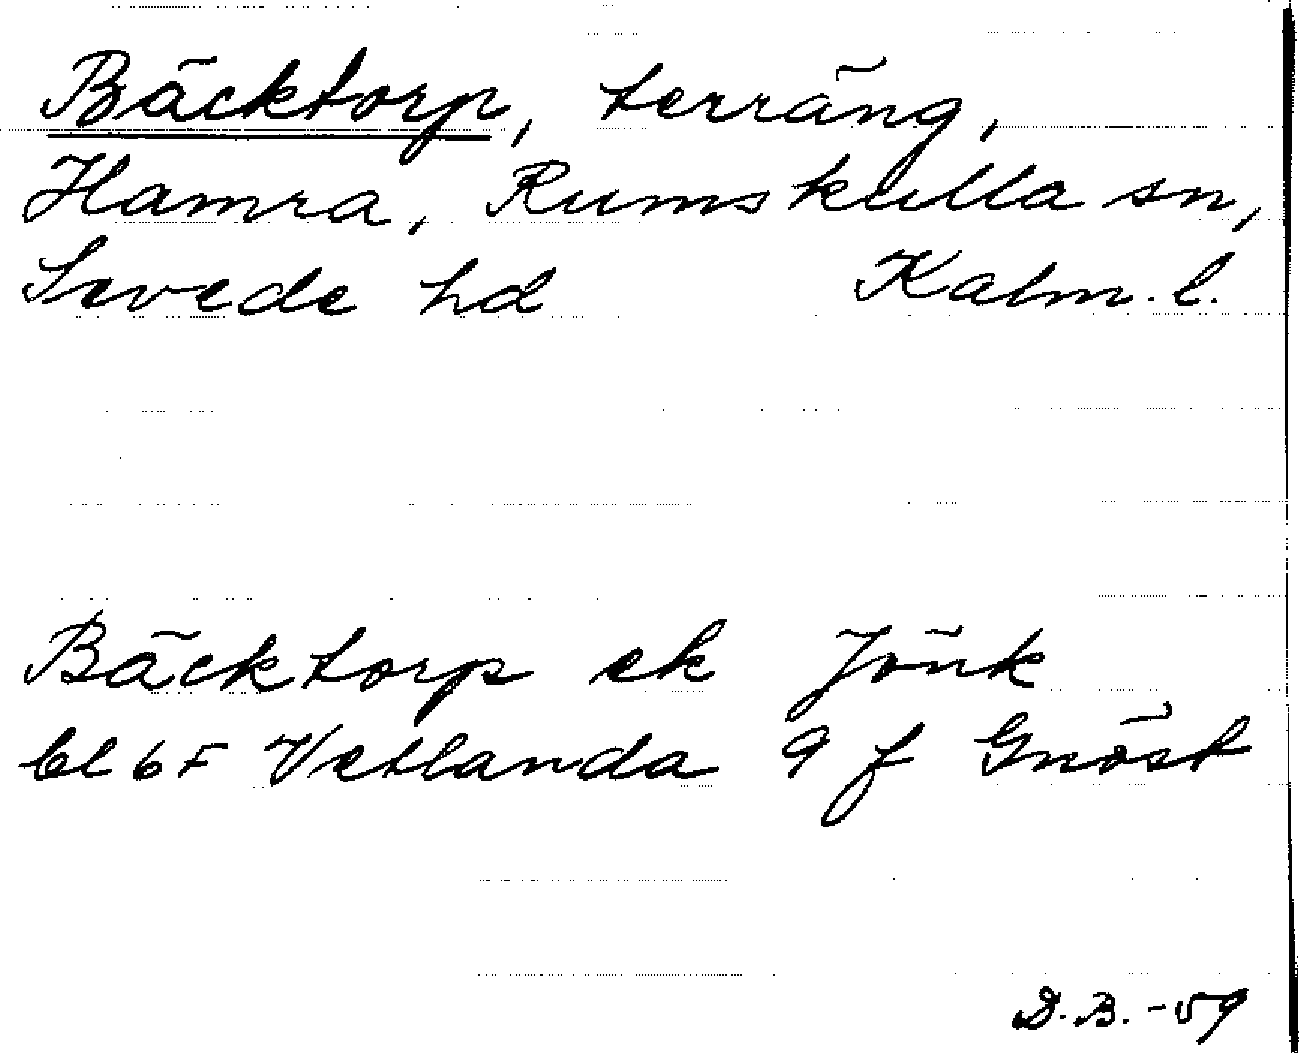 Bäcktorp, terräng,
Hamra, Rumskulla sn,
Sevede hd Kalm. l.
Bäcktorp ek Jönk
bl 6F Vetlanda 9 f Gnöst
D.B. -59